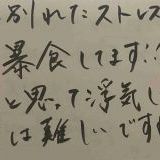 別れたストレス
暴食してます!!
と思って浮気し
は難しいです